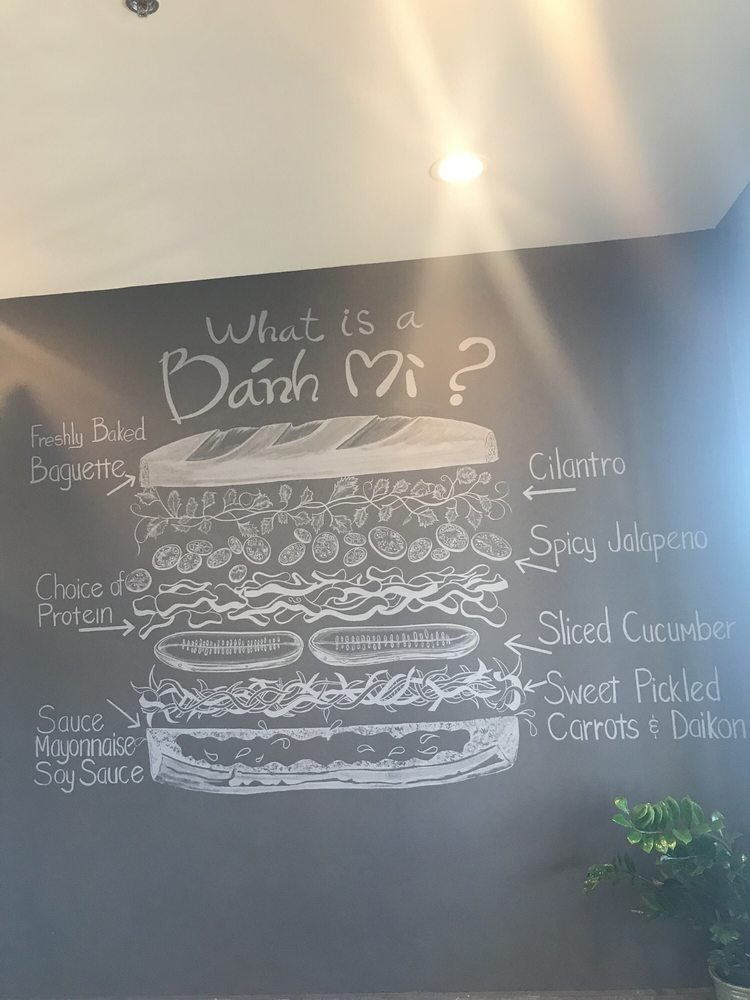 What is a
Bánh Mì ?
Freshly Baked
Baguette
Cilantro
Spicy Jalapeno
Choice of
Protein
Sliced Cucumber
Sweet Pickled
Carrots & Daikon
Sauce
Mayonnaise
Soy Sauce